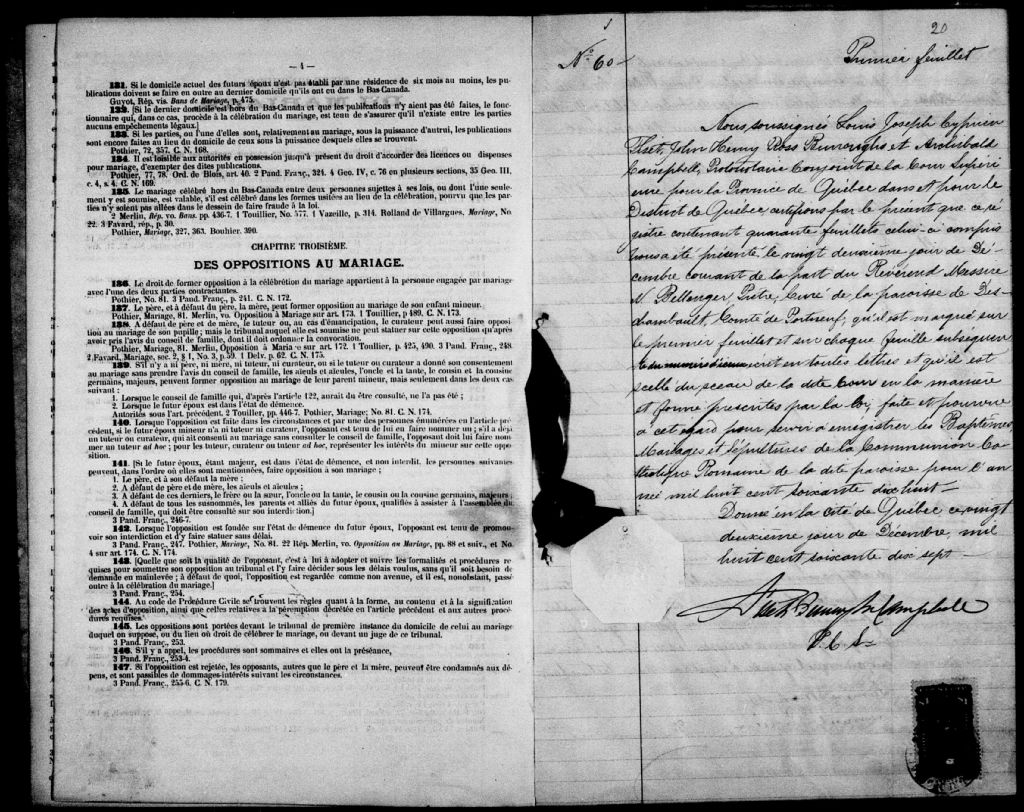 — 4 —
131. Si le domicile actuel des futurs époux n'est pas établi par une résidence de six mois au moins, les pu-
blications doivent se faire en outre au dernier domicile qu'ils ont eu dans le Bas-Canada.
Guyot, Rép. vis. Bans de Mariage, p. 475.
132. [Si le dernier domicile est hors du Bas-Canada et que les publications n'y aient pas été faites, le fonc-
tionnaire qui, dans ce cas, procède à la célébration du mariage, est tenu de s'assurer qu'il n'existe entre les parties
aucuns empêchements légaux.]
133. Si les parties, ou l'une d'elles sont, relativement au mariage, sous la puissance d'autrui, les publications
sont encore faites au lieu du domicile de ceux sous la puissance desquels elles se trouvent.
Pothier, 72, 357. C. N. 168.
134. Il est loisible aux autorités en possession jusqu'à présent du droit d'accorder des licences ou dispenses
pour mariage, d'exempter des dites publications.
Pothier, 77, 78. Ord. de Blois, art. 40. 2 Pand. Franç., 324. 4 Geo. IV, c. 76 en plusieurs sections, 35 Geo. III,
c. 4, s. 4. C. N. 169.
135. Le mariage célébré hors du Bas-Canada entre deux personnes sujettes à ses lois, ou dont l'une seule-
ment y est soumise, est valable, s'il est célébré dans les formes usitées au lieu de la célébration, pourvu que les par-
ties n'y soient pas allées dans le dessein de faire fraude à la loi.
2 Merlin, Rép. vo. Bans. pp. 436-7. 1 Touillier, No. 577. 1 Vazeille, p. 314. Rolland de Villargues, Mariage, No
22. 3 Favard, rép., p. 30.
Pothier, Mariage, 327, 363. Bouhier. 390.
CHAPITRE TROISIÈME.
DES OPPOSITIONS AU MARIAGE.
136. Le droit de former opposition à la célébrêtion du mariage appartient à la personne engagée par mariage
avec l'une des deux parties contractantes.
Pothier, No. 81. 3 Pand. Franç., p. 241. C. N. 172.
137. Le père, et à défaut du père, la mère, peut former opposition au mariage de son enfant mineur.
Pothier, Mariage, 81. Merlin, vo. Opposition à Mariage sur art. 173. 1 Touillier, p 489. C. N. 173.
138. A défaut de père et de mère, le tuteur ou, au cas d'émancipation, le curateur peut aussi faire opposi
tion au mariage de son pupille; mais le tribunal auquel elle est soumise ne peut statuer sur cette opposition qu'après
avoir pris l'avis du conseil de famille, dont il doit ordonner la convocation.
Pothier, Mariage, 81. Merlin, Opposition à Maria e sur art. 172. 1 Toullier, p. 425, 490. 3 Pand. Franç., 248.
2 Favard, Mariage, sec. 2, § 1, No. 3, p. 59. 1 Delv. p. 62. C. N. 175.
139. S'il n'y a ni père, ni mère, ni tuteur, ni curateur, ou si le tuteur ou curateur a donné son consentement
au mariage sans prendre l'avis du conseil de famille, les aieuls et aieules, l'oncle et la tante, le cousin et la cousine
germains, majeurs, peuvent former opposition au mariage de leur parent mineur, mais seulement dans les deux cas
suivant :
1. Lorsque le conseil de famille qui, d'après l'article 122, aurait du être consulté, ne l'a pas été ;
2. Lorsque le futur époux est dans l'état de démence.
Autorités sous l'art. précédent. 2 Touiller, pp. 446-7. Pothier, Mariage; No. 81. C. N. 174.
140. Lorsque l'opposition est faite dans les circonstances et par une des personnes énumérées en l'article pré-
cédent, si le futur époux mineur n'a ni tuteur ni curateur, l'opposant est tenu de lui en faire nommer un; s'il a déjà
un tuteur ou curateur, qui ait consenti au mariage sans consulter le conseil de famille, l'opposant doit lui faire nom-
mer un tuteur ad hoc; pour les tuteur, curateur ou tuteur ad hoc, représenter les intérêts du mineur sur cette oppo-
sition.
141. [Si le futur époux, étant majeur, est dans l'état de démence, et non interdit, les personnes suivantes
peuvent, dans l'ordre où elles sont mentionnées, faire opposition à son mariage ;
1. Le père, et à son défaut la mère ;
2. A défaut de père et de mère, les aieuls et aieules ;
3. A défaut de ces derniers, le frère ou la sœur, l'oncle ou la tante, le cousin ou la cousine germains, majeurs ;
4. A défaut de tous les susnommés, les parents et alliés du futur époux, qualifiés à assister à l'assemblée du
conseil de famille, qui doit être consulté sur son interdiction.]
3 Pand. Franç., 246-7.
142. Lorsque l'opposition est fondée sur l'état de démence du futur époux, l'opposant est tenu de promou-
voir son interdiction et d'y faire statuer sans délai.
3 Pand. Franç., 247. Pothier, Mariage, No. 81. 22 Rép. Merlin, vo. Opposition au Mariage, pp. 88 et suiv., et No.
4 sur art. 174. C. N. 174.
143. [Quelle que soit la qualité de l'opposant, c'est à lui à adopter et suivre les formalités et procédures re
quises pour soumettre son opposition au tribunal et l'y faire décider sous les délais voulus, sans qu'il soit besoin de
demande en mainlevée ; à défaut de quoi, l'opposition est regardée comme non avenue, et il est, nonobstant, passé
outre à la célébration du mariage.]
3 Pand. Franç., 254.
144. Au code de Procédure Civile se trouvent les règles quant à la forme, au contenu et à la signification
des actes d'opposition, ainsi que celles relatives à la péremption décrétée en l'article précédent et aux autres procé-
dures requises.
145. Les oppositions sont portées devant le tribunal de première instance du domicile de celui au mariage
duquel on suppose, ou du lieu où droit de célébrer le mariage, ou devant un juge de ce tribunal.
3 Pand. Franç., 253.
146. S'il y a appel, les procédures sont sommaires et elles ont la préséance,
3 Pand. Franç., 253-4.
147. Si l'opposition est rejetée, les opposants, autres que le père et la mère, peuvent être condamnés aux dé-
pens, et sont passibles de dommages-intérêts suivant les circonstances.
3 Pand. Franç., 255-6. C. N. 179.
1
20
No. 60 —
Premier feuillet
Nous, soussignés Louis Joseph Cyprien
Fiset, John Henry Ross Burroughs et Archibald
Campbell, Protonotaire Conjoint de la Cour Supéri
eure pour la Province de Québec dans et pour le
District de Québec certifions par le présent que ce ré
gistre contenant quarante feuillets celui-ci compris
nous a été présenté le vingt deuxième jour de Dé-
cembre courant de la part du Révérend Messire
N. Bellenger, Prêtre, Curé de la paroisse de Des
chambault, Comté de Portneuf, qu'il est marqué sur
le premier feuillet et sur chaque feuille subséquen
te du numéro d'icelui écrit en toutes lettres et qu'il est
scellé du sceau de la dite Cour en la manière
et forme prescrites par la loi, faite et pourvue
à cet égard pour servir à enregistrer les Baptêmes,
Mariages et Sépultures de la Communion Ca-
tholique Romaine de la dite paroisse pour l'an
née mil huit cent soixante dix huit —
Donné en la Cité de Québec ce vingt
deuxième jour de Décembre, mil
huit cent soixante dix sept —
Fiset Burroughs Campbell
P. C. S.